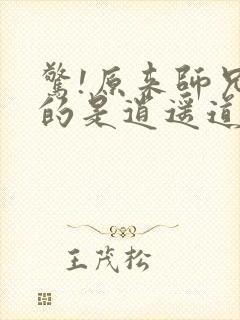 驚!原来師兄
的是道遥道
王茂松